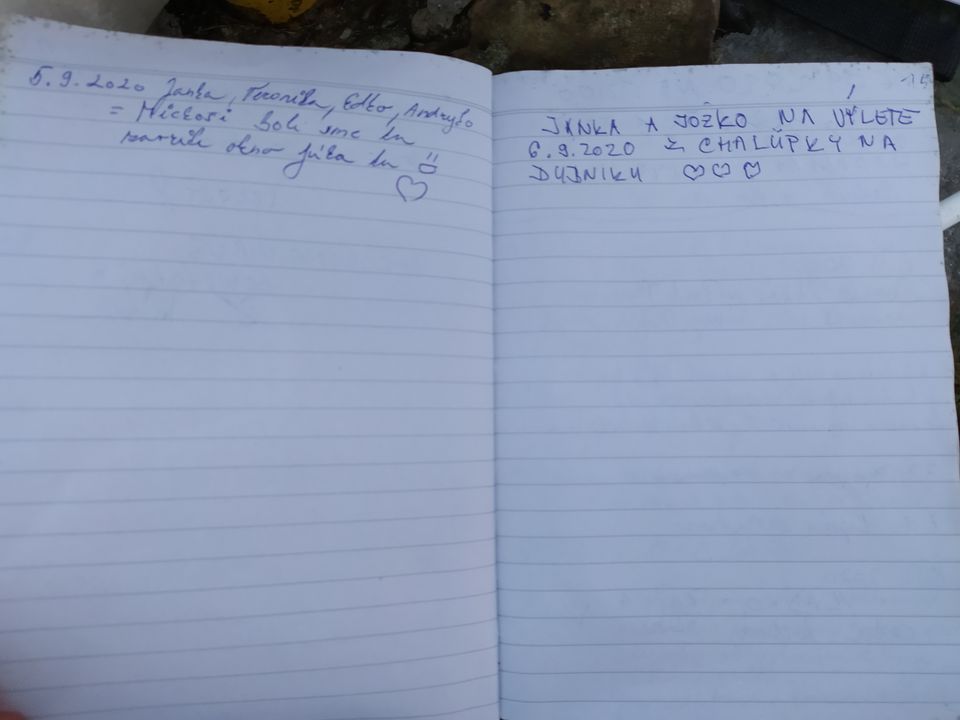 5.9.2020 Janka, Veronika, Edko, Andrejko
= Mickosi Boli sme tu
tu
JANKA A JOŽKO NA VÝLETE
6.9.2020 Z CHALÚPKY NA
DUJNIKU ♡♡♡